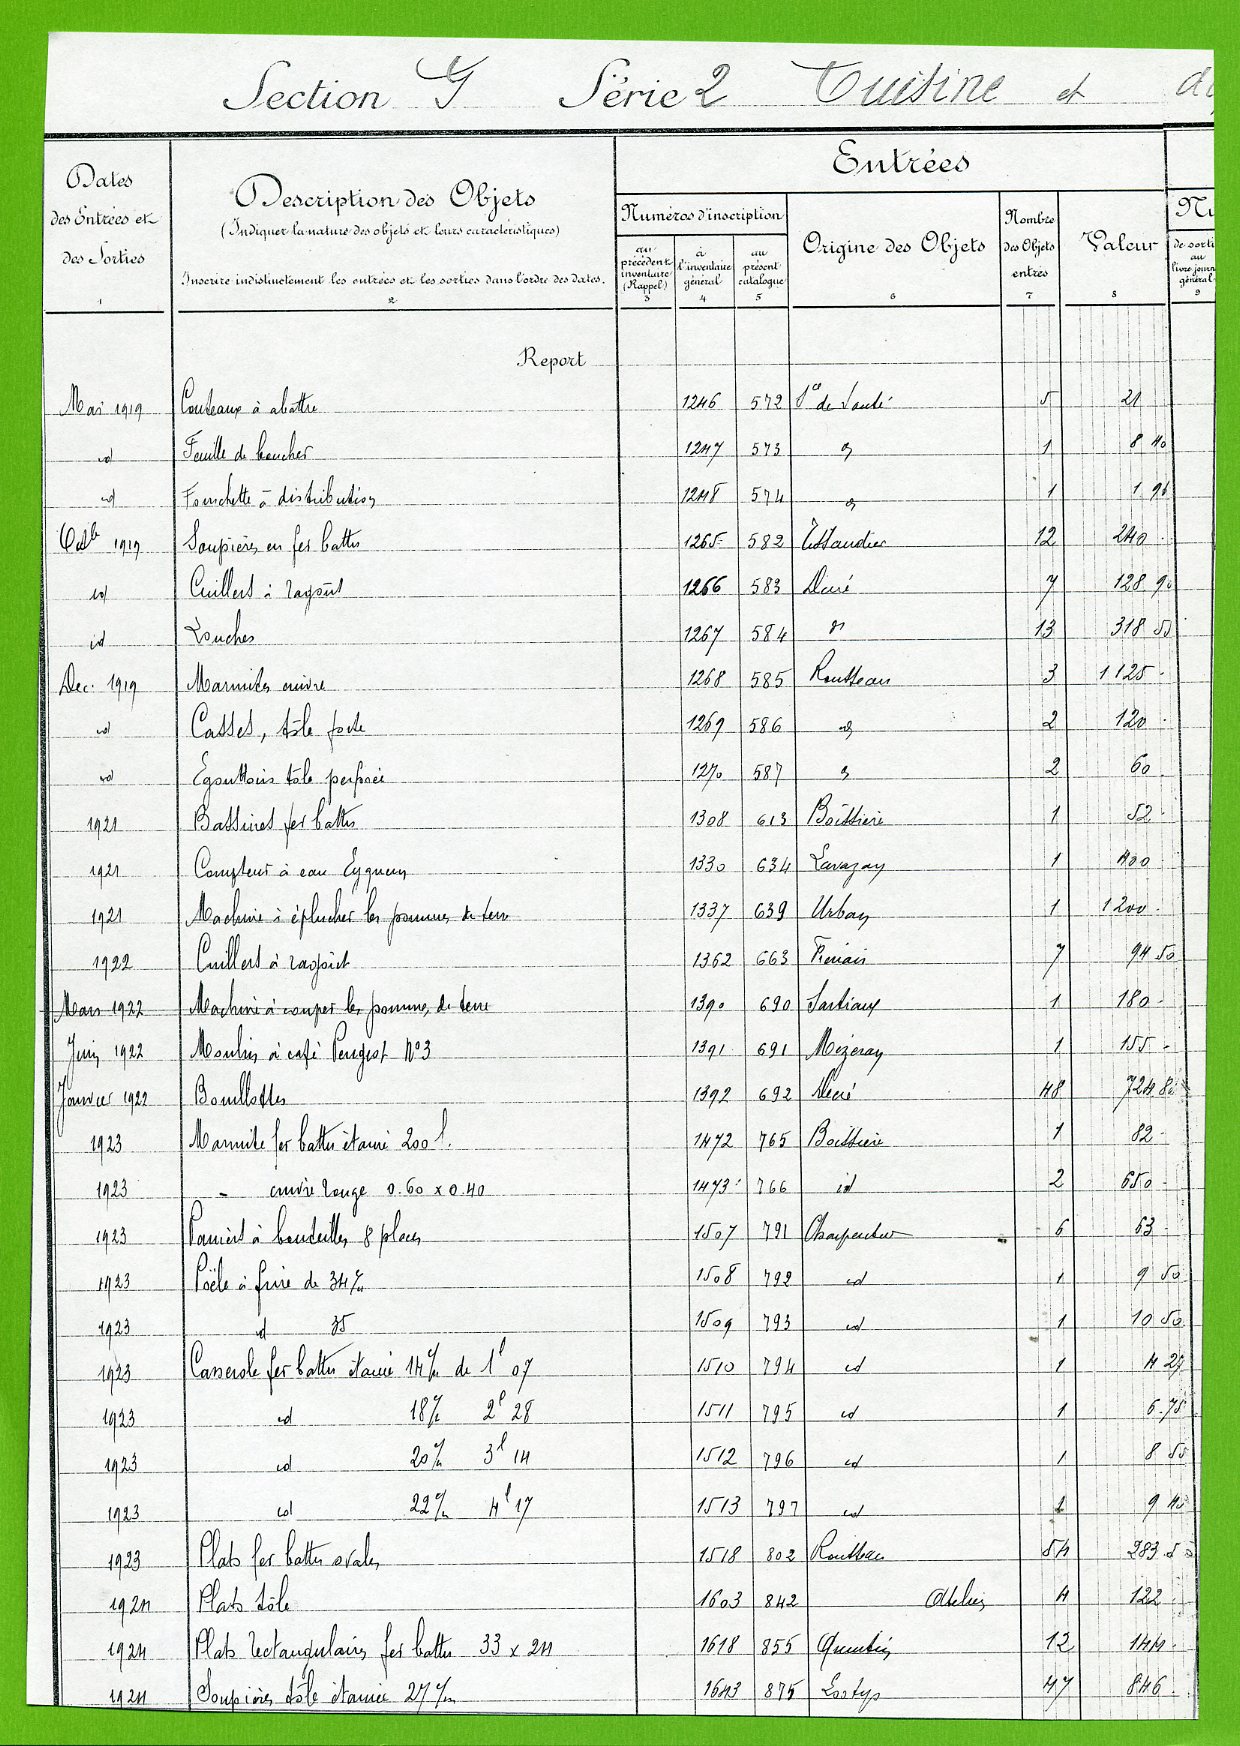 Section G Série 2 Cuisine et
Entrées
Dates des Entrées et des Sorties
Description des Objets
(Indiquer la nature des objets et leurs caractéristiques)
Inscrire indistinctement les entrées et les sorties dans l'ordre des dates.
Numéros d'inscription
au précédent inventaire (Rappel)
à l'inventaire général
au présent catalogue
Origine des Objets
Nombre des Objets entrés
Valeur
Nu
de sorti au livre journ général
1 2 3 4 5 6 7 8 9
Report
Mai 1919 Couteaux à abattre 1246 572 Sce de Santé 5 21
id Feuille de boucher 1247 573 1 8 40
id Fourchette à distribution 1248 574 1 1 96
Octb 1919 Soupières en fer battu 1265 582 12 240
id Cuillers à ragoût 1266 583 Décré 7 128 90
id Louches 1267 584 13 318 50
Dec. 1919 Marmites cuivre 1268 585 Rousseau 3 1125
id Casses, tôle forte 1269 586 id 2 120
id Egouttoirs tôle perforée 1270 587 2 60
1921 Bassines fer battu 1308 613 Boissière 1 52
1921 Compteur à eau Eyquem 1330 634 1 400
1921 Machine à éplucher les pommes de terre 1337 639 Urbain 1 1200
1922 Cuillers à ragoût 1362 663 7 94 50
Mars 1922 Machine à couper les pommes de terre 1390 690 Sartiaux 1 180
Juin 1922 Moulin à café Peugeot N°3 1391 691 Mézeray 1 155
Janvier 1922 Bouillottes 1392 692 Décré 48 724 80
1923 Marmite fer battu étamé 200 l. 1472 765 Boissière 1 82
1923 - cuivre rouge 0.60 x 0.40 1473 766 id 2 650
1923 Paniers à bouteilles 8 places 1507 791 Charpentier 6 63
1923 Poële à frire de 34 c/m 1508 792 id 1 9 50
1923 id 35 1509 793 id 1 10 50
1923 Casserole fer battu étamé 14 c/m de 1l 07 1510 794 id 1 4 27
1923 id 18 c/m 2l 28 1511 795 id 1 6.75
1923 id 20 c/m 3l 14 1512 796 id 1 8 50
1923 id 22 c/m 4l 17 1513 797 id 1 9 40
1923 Plats fer battu ovales 1518 802 Rousseau 54 283 50
1924 Plats tôle 1603 842 Atelier 4 122
1924 Plats rectangulaires fer battu 33 x 24 1618 855 Quentin 12 144
1924 Soupières tôle étamée 27 c/m 1643 875 Lostys 47 846